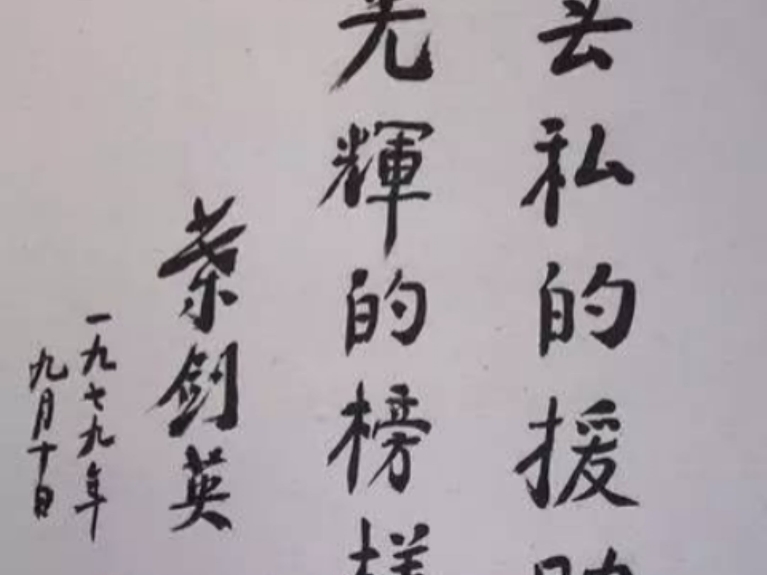 私的援助
光輝的榜样
叶剑英
一九七九年
九月十日